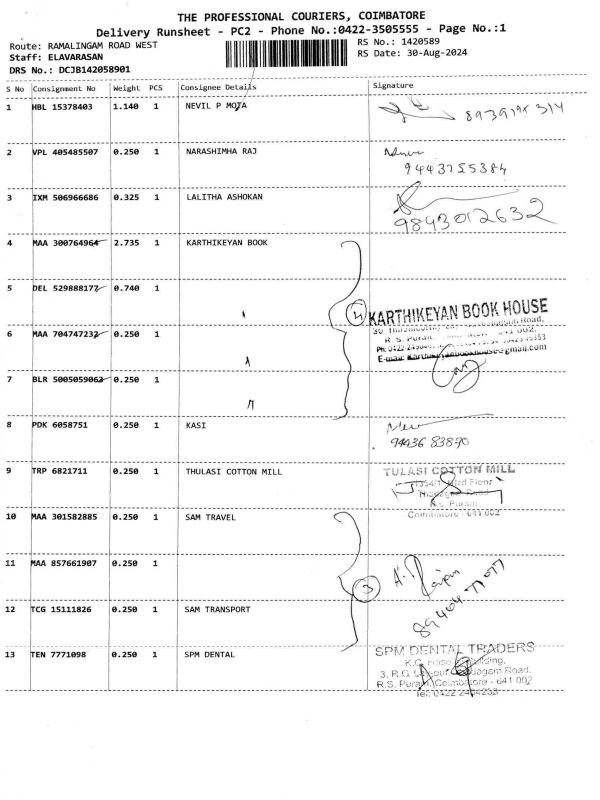 THE PROFESSIONAL COURIERS, COIMBATORE
Delivery Runsheet - PC2 - Phone No.:0422-3505555 - Page No.:1
Route: RAMALINGAM ROAD WEST RS No.: 1420589
Staff: ELAVARASAN RS Date: 30-Aug-2024
DRS No.: DCJB142058901
S No Consignment No Weight PCS Consignee Details Signature
1 HBL 15378403 1.140 1 NEVIL P MOTA
2 VPL 405485507 0.250 1 NARASHIMHA RAJ
9443755384
3 IXM 506966686 0.325 1 LALITHA ASHOKAN
9843012632
4 MAA 300764964 2.735 1 KARTHIKEYAN BOOK
5 DEL 529888177 0.740 1
4 KARTHIKEYAN BOOK HOUSE
R. S. Puram, 641 002.
6 MAA 704747232 0.250 1
E-mail: Karthikeyanbookhouse@gmail.com
7 BLR 5005059063 0.250 1
8 PDK 6058751 0.250 1 KASI
94436 83890
9 TRP 6821711 0.250 1 THULASI COTTON MILL TULASI COTTON MILL
Floor
Road
R.S. Puram
Coimbatore - 641 002
10 MAA 301582885 0.250 1 SAM TRAVEL
11 MAA 857661907 0.250 1
3
12 TCG 15111826 0.250 1 SAM TRANSPORT
13 TEN 7771098 0.250 1 SPM DENTAL SPM DENTAL TRADERS
K.C. Building,
3, R.G. Road,
R.S. Puram, Coimbatore - 641 002
Tel: 0422